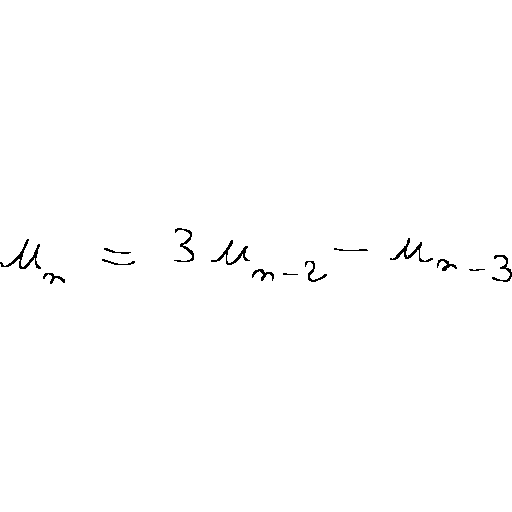 u_n = 3 u_{n-2} - u_{n-3}